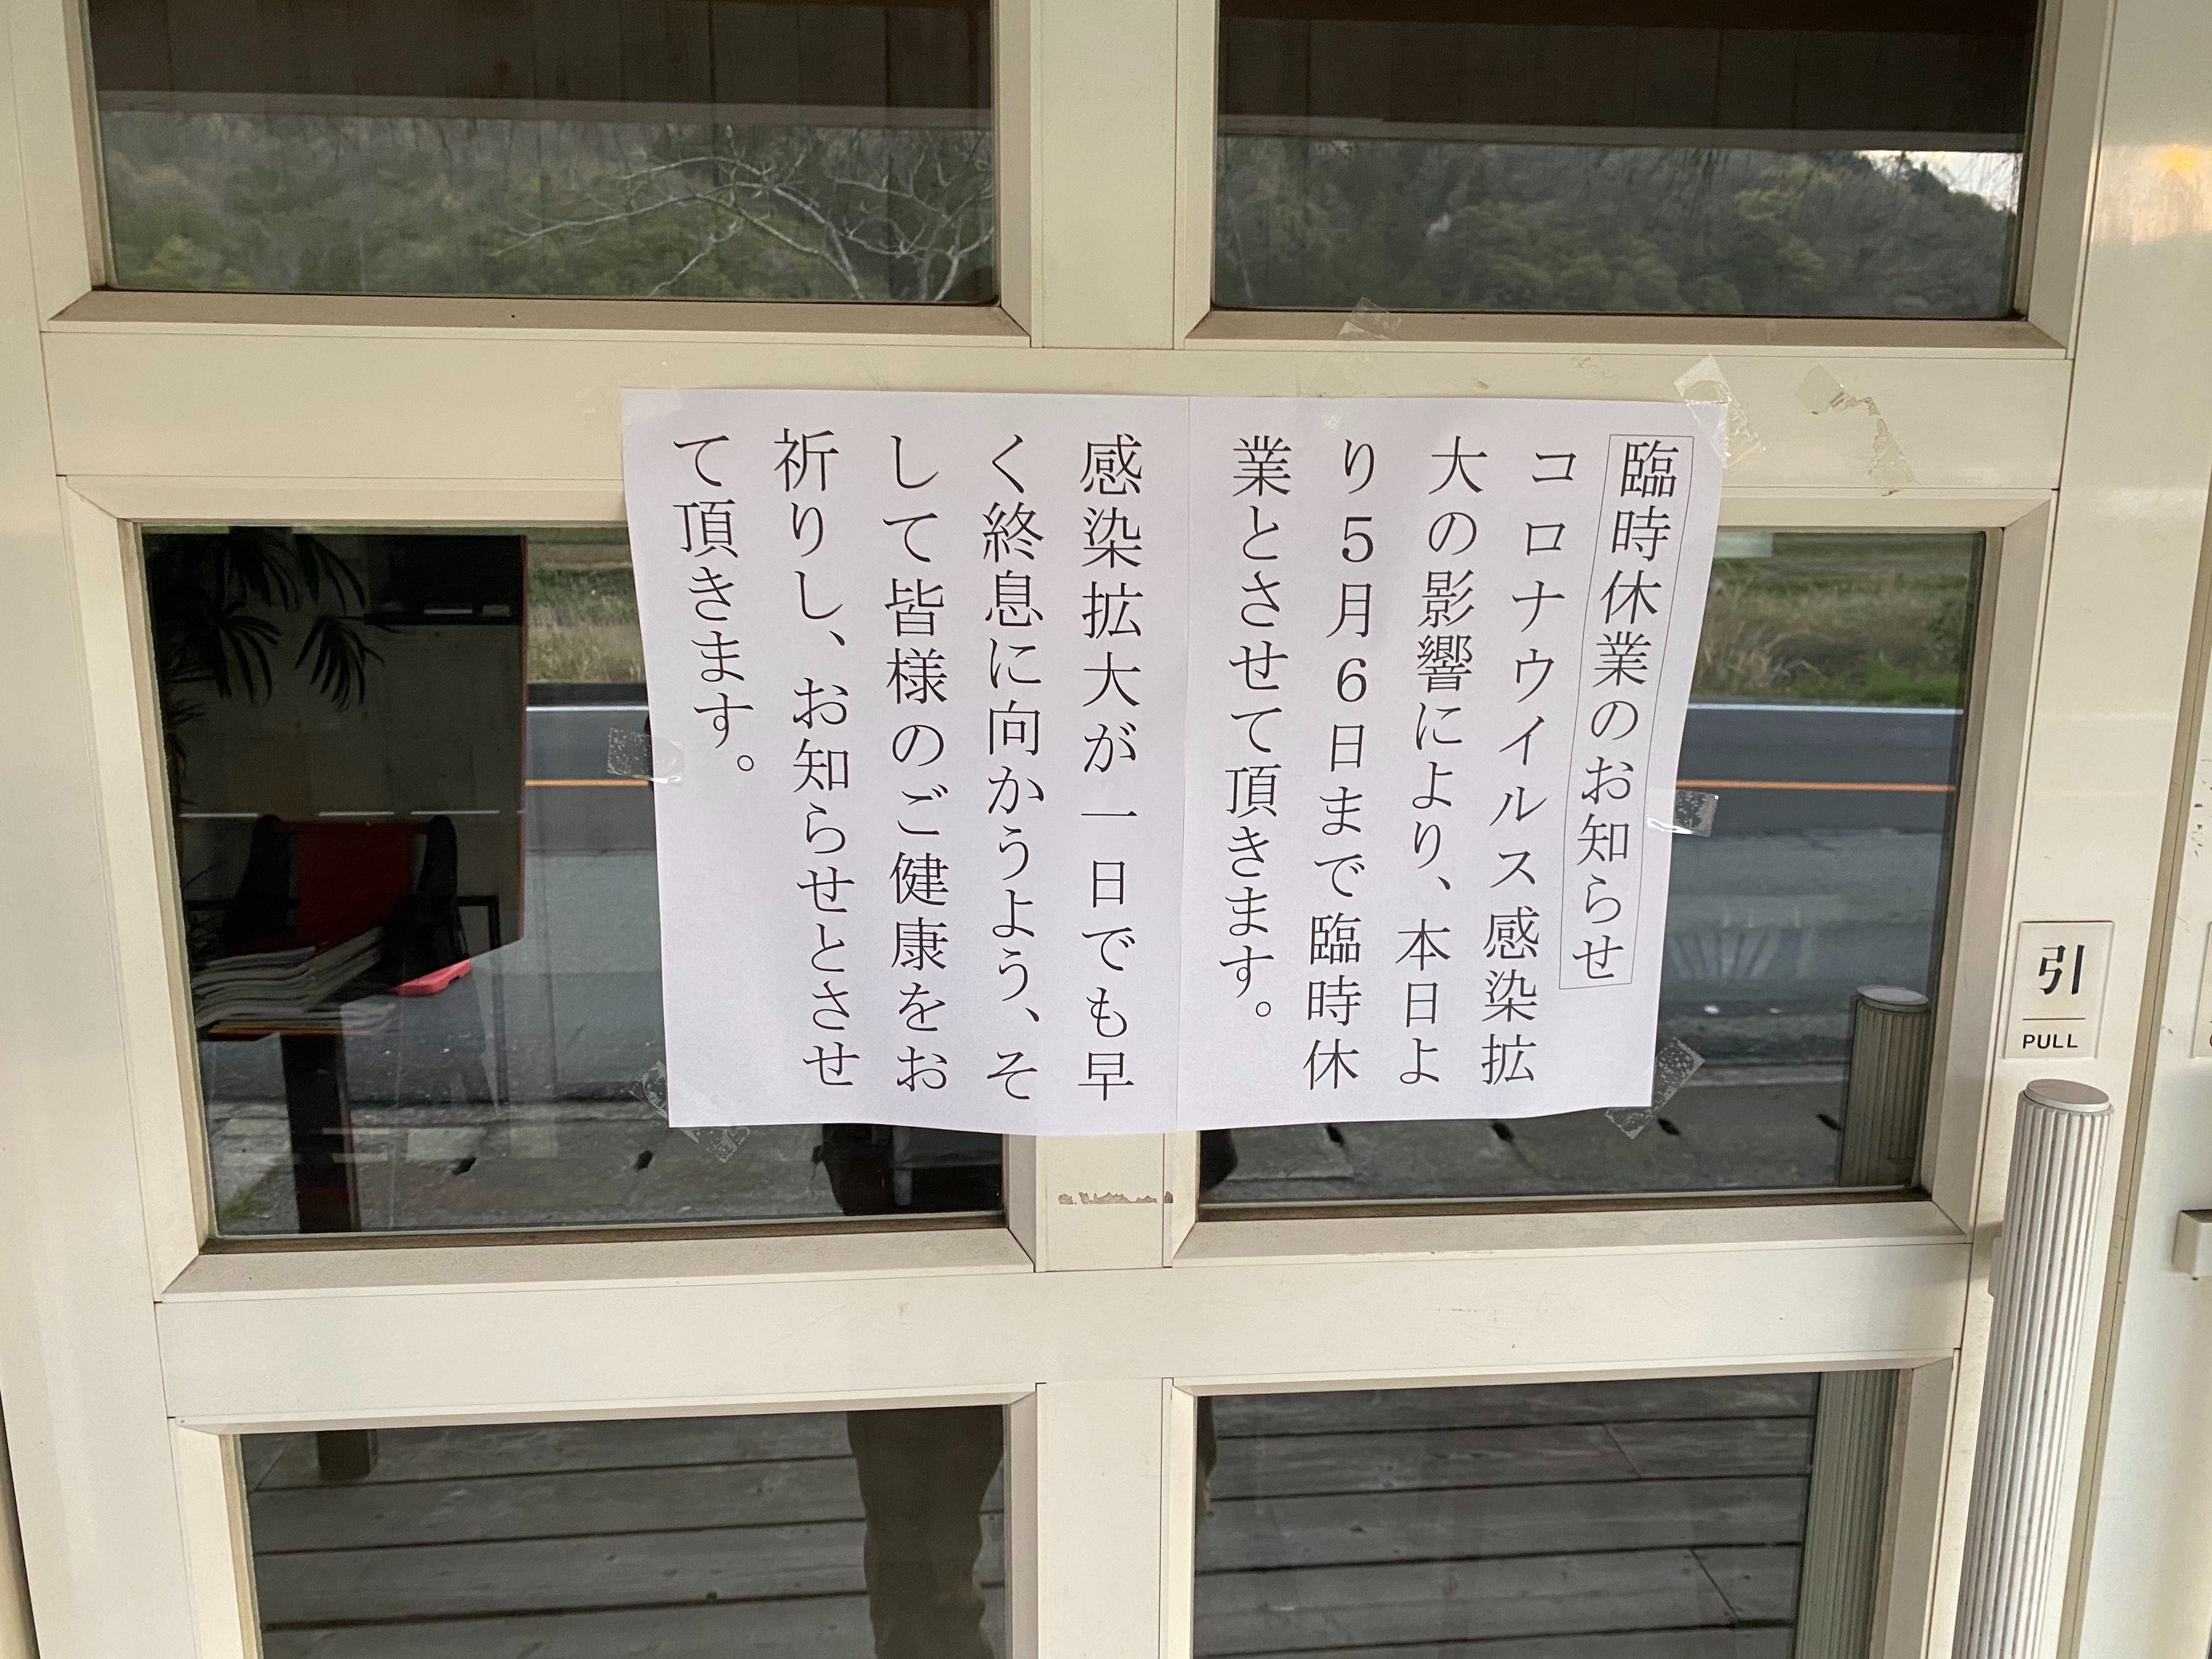 臨時休業のお知らせ
コロナウイルス感染拡
大の影響により、本日よ
り5月6日まで臨時休
業とさせて頂きます。
感染拡大が一日でも早
く終息に向かうよう、そ
して皆様のご健康をお
祈りし、お知らせとさせ
て頂きます。
引
PULL